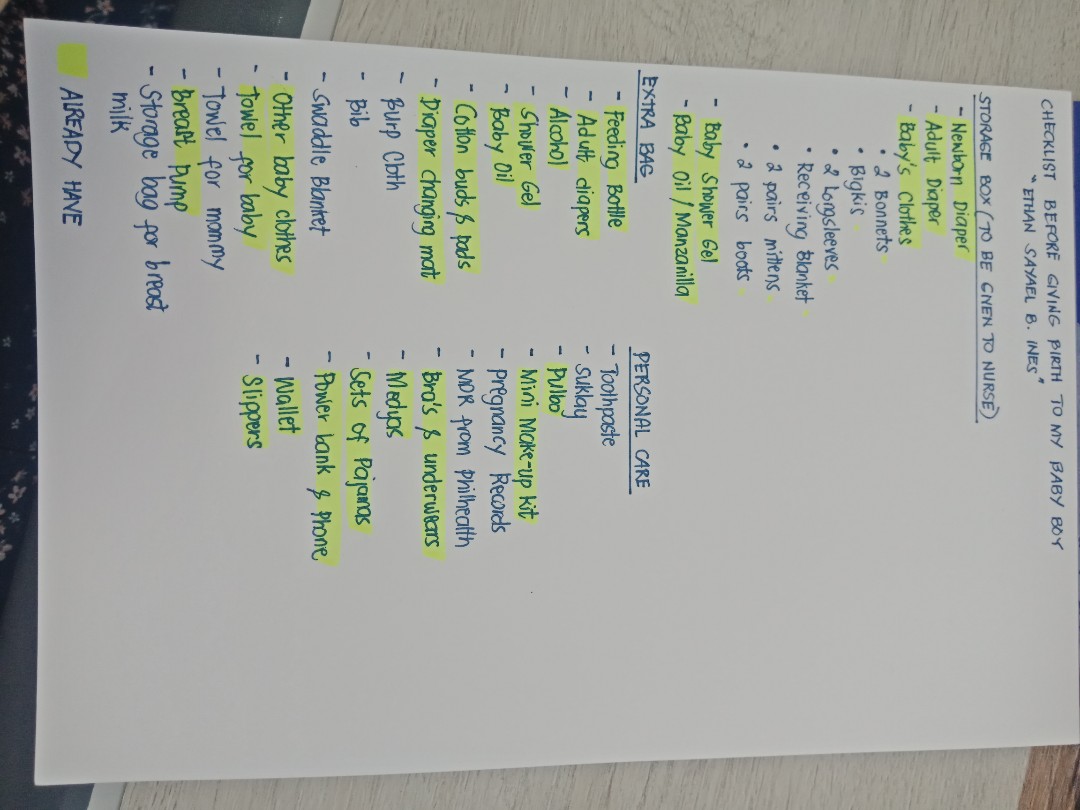 CHECKLIST BEFORE GIVING BIRTH TO MY BABY BOY
"ETHAN SAYAEL B. INES"
STORAGE BOX (TO BE GIVEN TO NURSE)
- Newborn Diaper
- Adult Diaper
- Baby's Clothes
• 2 Bonnets
• Bigkis
• 2 longsleeves
• Receiving Blanket
• 2 pairs mittens
• 2 pairs boots
- Baby Shower Gel
- Baby Oil / Manzanilla
EXTRA BAG
- Feeding Bottle
- Adult diapers
- Alcohol
- Shower Gel
- Baby Oil
- Cotton buds & pods
- Diaper changing mat
- Burp Cloth
- Bib
- Swaddle Blanket
- Other baby clothes
- Towel for baby
- Towel for mommy
- Breast Pump
- Storage bag for breast
milk
PERSONAL CARE
- Toothpaste
- Suklay
- Pulbo
- Mini Make-up kit
- Pregnancy Records
- MDR from Philhealth
- Bra's & underwears
- Medyas
- Sets of Pajamas
- Power bank & Phone
- Wallet
- Slippers
ALREADY HAVE